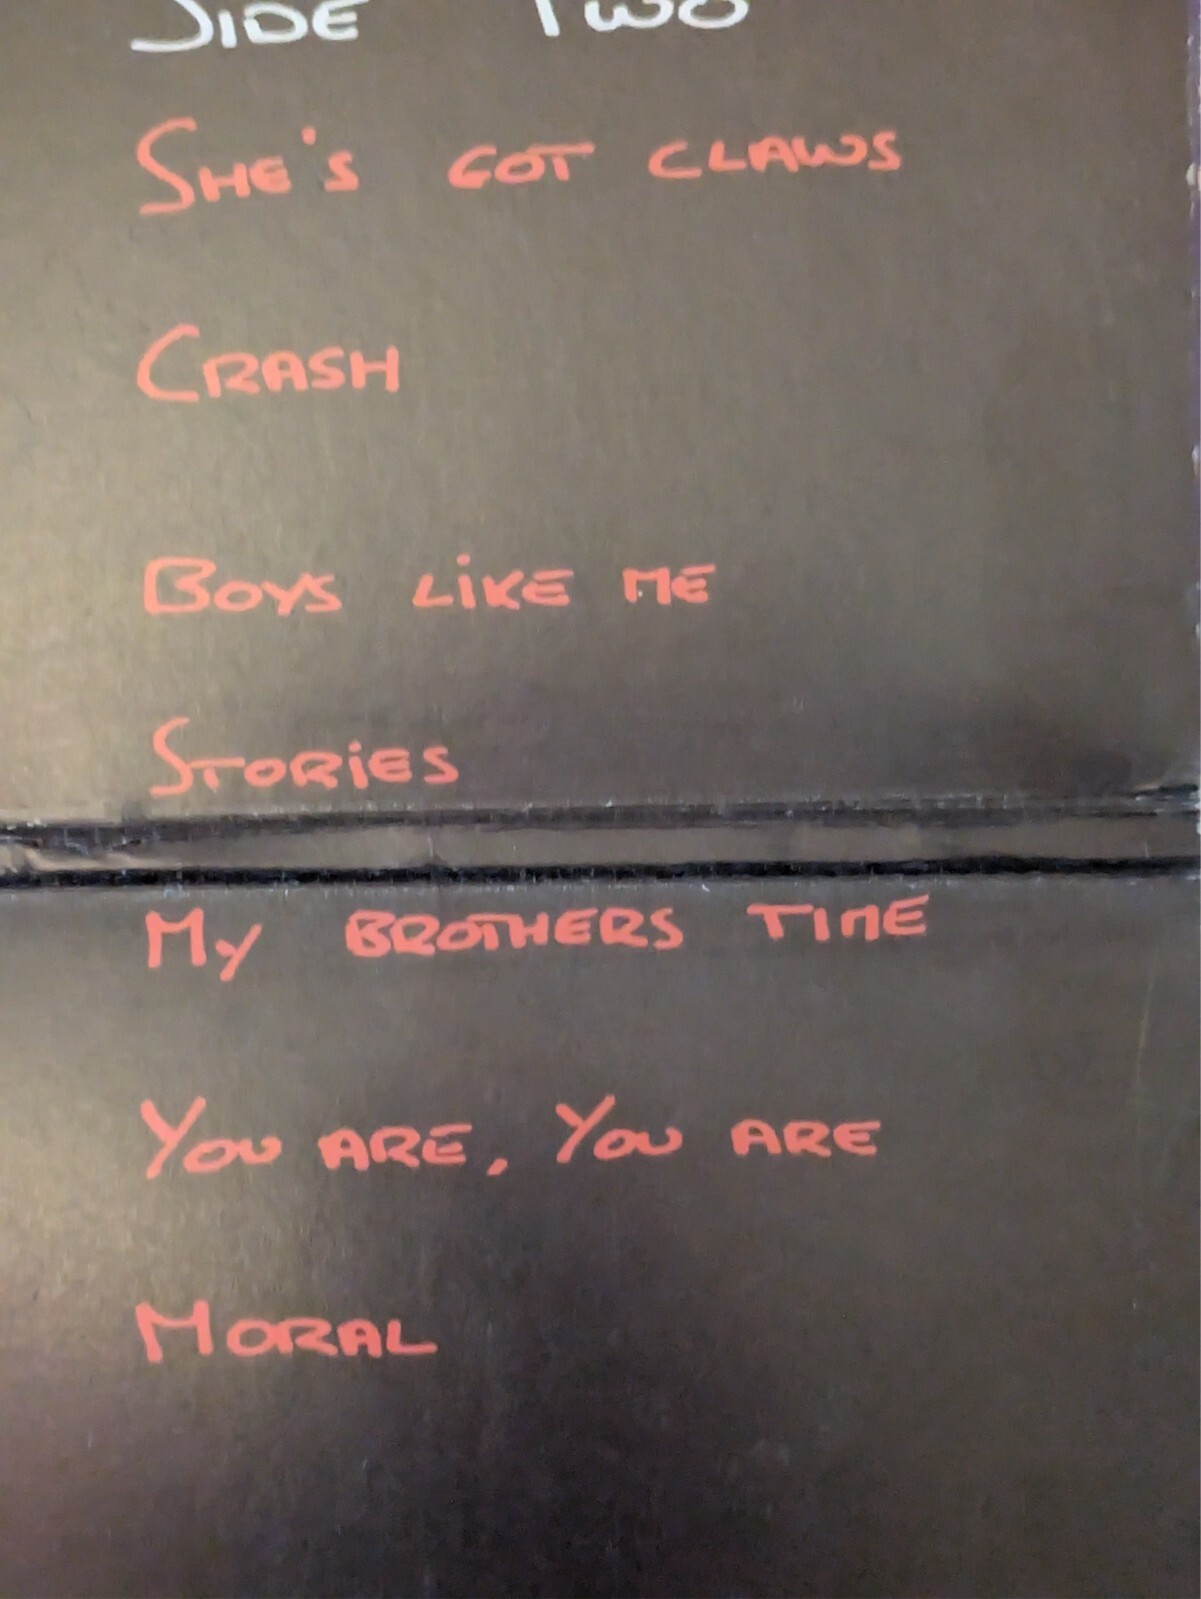 SIDE TWO
SHE'S GOT CLAWS
CRASH
BOYS LiKE ME
STORiES
MY BROTHERS TIME
YOU ARE, YOU ARE
MORAL